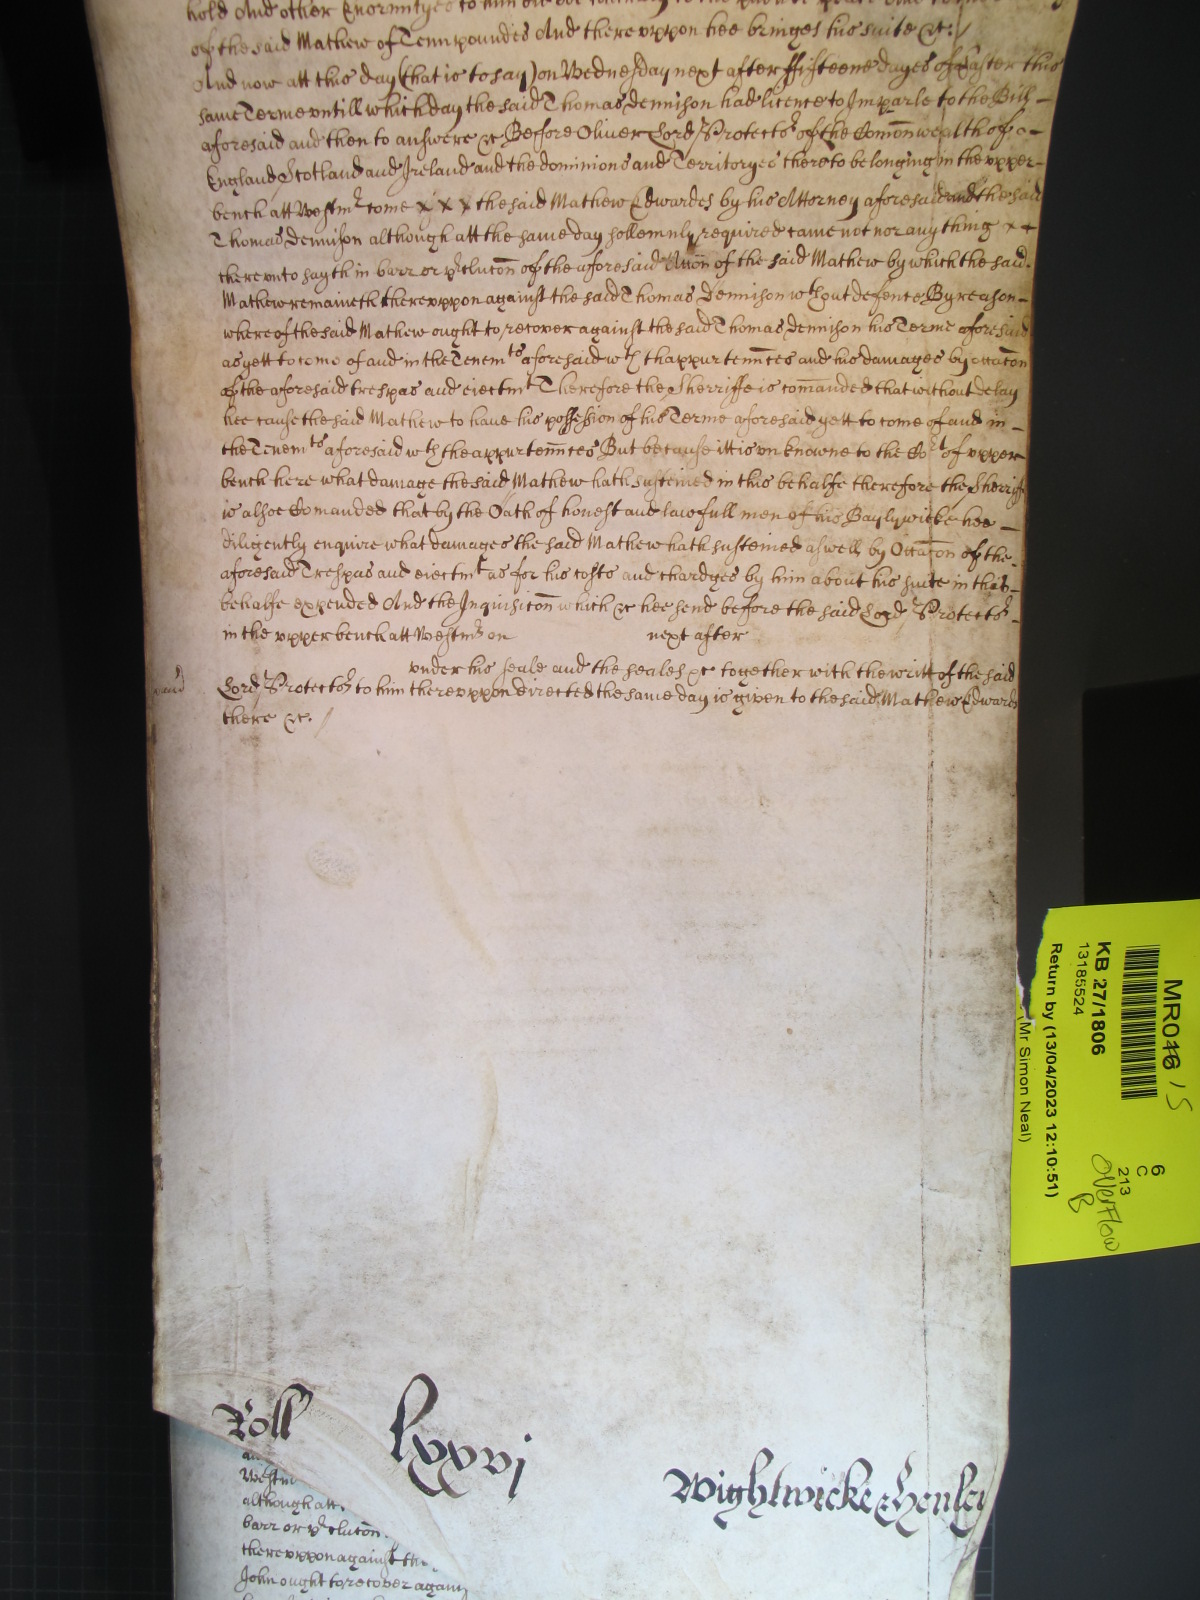 hold And other Enormityes to him
of the said Mathew of Tenn poundes And there vppon hee bringes his suite &c.
And now att this day (that is to say) on Wednesday next after ffifteene dayes of Easter this
same Terme vntill which day the said Thomas Dennison had licence to Imparle to the Bill
aforesaid and then to answere &c Before Oliver Lord Protector of the Com̄onwealth of
England Scotland and Ireland and the dominions and Territoryes thereto belonging in the vpper
bench att Westmr come x x x the said Mathew Edwardes by his Attorney aforesaid and the said
Thomas Dennison although att the same day sollemnly required came not nor any thing x x
therevnto sayth in barr or p̱clucōn of the aforesaid Accōn of the said Mathew by which the said
Mathew remaineth therevppon against the said Thomas Dennison wth out defence By reason
whereof the said Mathew ought to recover against the said Thomas Dennison his Terme aforesaid
as yett to come of and in the Tenemts aforesaid wth thappurtenn̄ces and his damages by occacōn
of the aforesaid trespas and eiectmt Therefore the Sherriffe is com̄anded that without delay
hee cause the said Mathew to have his possession of his Terme aforesaid yett to come of and in
the Tenemts aforesaid wth the appurtenn̄ces But because itt is vnknowne to the Cort of vpper
bench here what damage the said Mathew hath susteined in this behalfe therefore the Sherriffe
is alsoe Com̄anded that by the Oath of honest and lawfull men of his Baylywicke hee
diligently enquire what damages the said Mathew hath susteined aswell by Occacōn of the
aforesaid Trespas and eiectmt as for his costs and chardges by him about his suite in that
behalfe expended And the Inquisicōn which &c hee send before the said Lord Protector
in the vpper bench att Westmr on next after
vnder his seale and the seales &c together with the writt of the said
Lord Protector to him therevppon directed the same day is given to the said Mathew Edwards
there &c.
Roll lxxvj
Wightwicke & Henley
Westm
although att
barr or p̱clucōn
therevppon against the
John ought to recover again
MR016 15
KB 27/1806
13185524
Return by (13/04/2023 12:10:51)
(Mr Simon Neal)
6
C
213
Overflow
B